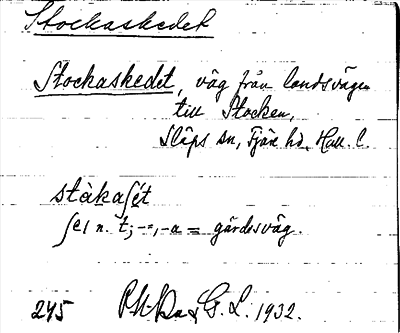 Stockaskedet
Stockaskedet, väg från landsvägen
till Stocken,
Släps sn, Fjäre hd, Hall. l.
stàkaʃét
ʃe/ n. t; -=, -a = gärdesväg.
245 G. L. 1932.